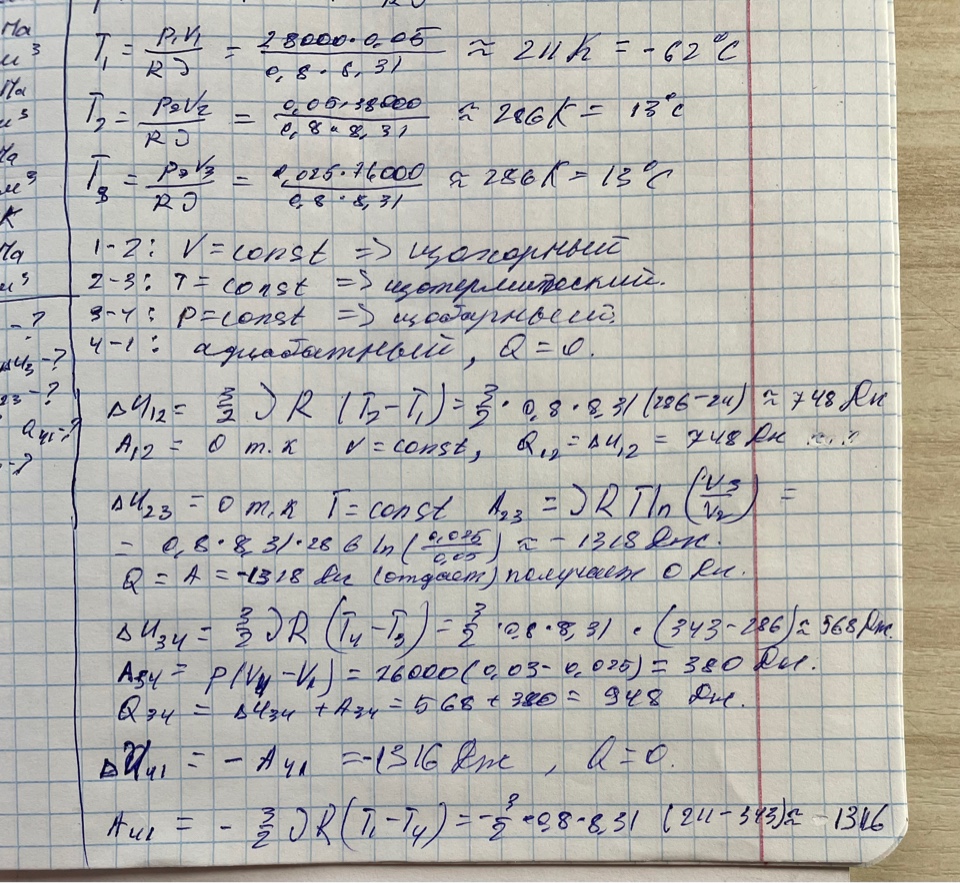 Па
м³
Па
м³
Па
м³
К
Па
м³
-?
ΔU₃-?
₂₃-?
Q₄₁-?
-?
T₁ = P₁V₁/Rν = 28000·0,05/0,8·8,31 ≈ 211K = -62°C
T₂ = P₂V₂/Rν = 0,05·38000/0,8·8,31 ≈ 286K = 13°C
T₃ = P₃V₃/Rν = 0,025·76000/0,8·8,31 ≈ 286K = 13°C
1-2: V=const => изохорный
2-3: T=const => изотермический.
3-4: P=const => изобарный.
4-1: адиабатный, Q=0.
ΔU₁₂ = 3/2 νR (T₂-T₁) = 3/2 · 0,8·8,31(286-211) ≈ 748 Дж
A₁₂ = 0 т.к V=const, Q₁₂=ΔU₁₂ = 748 Дж
ΔU₂₃ = 0 т.к T=const A₂₃ = νRT ln(V₃/V₂) =
= 0,8·8,31·286 ln(0,025/0,05) ≈ -1318 Дж.
Q = A = -1318 Дж (отдает) получает 0 Дж.
ΔU₃₄ = 3/2 νR (T₄-T₃) = 3/2 ·0,8·8,31 · (343-286) ≈ 568 Дж.
A₃₄ = P(V₄-V₃) = 76000(0,03-0,025) = 380 Дж.
Q₃₄ = ΔU₃₄ + A₃₄ = 568 + 380 = 948 Дж.
ΔU₄₁ = - A₄₁ = -1316 Дж, Q=0.
A₄₁ = - 3/2 νR(T₁-T₄) = -3/2 ·0,8·8,31 (211-343) ≈ -1316